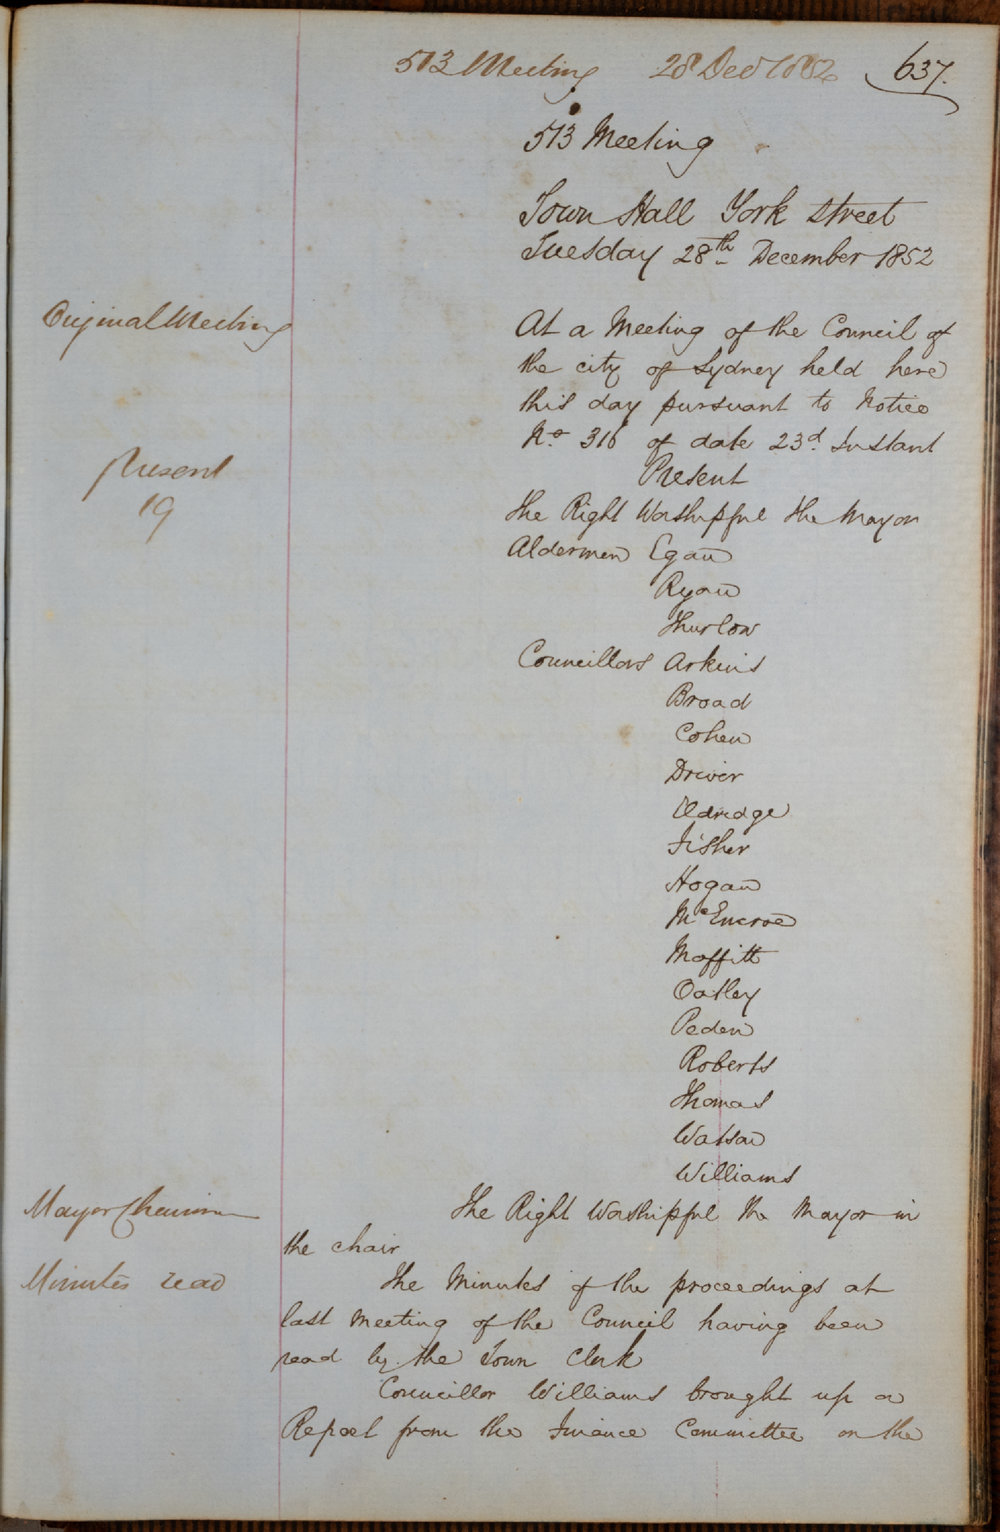 513 Meeting 28 Decr 1852 637.
513 Meeting
Town Hall York Street
Tuesday 28th December 1852
Original Meeting
At a Meeting of the Council of
the city of Sydney held here
this day pursuant to Notice
No 316 of date 23d. Instant
Present
Present
19
The Right Worshipful the Mayor
Aldermen Egan
Ryan
Thurlow
Councillors Arkins
Broad
Cohen
Driver
Eldridge
Fisher
Hogan
McEncroe
Moffitt
Oatley
Peden
Roberts
Thomas
Watson
Williams
Mayor Chairman
The Right Worshipful the Mayor in
the chair
Minutes read
The Minutes of the proceedings at
last meeting of the Council having been
read by the Town Clerk
Councillor Williams brought up a
Report from the Finance Committee on the